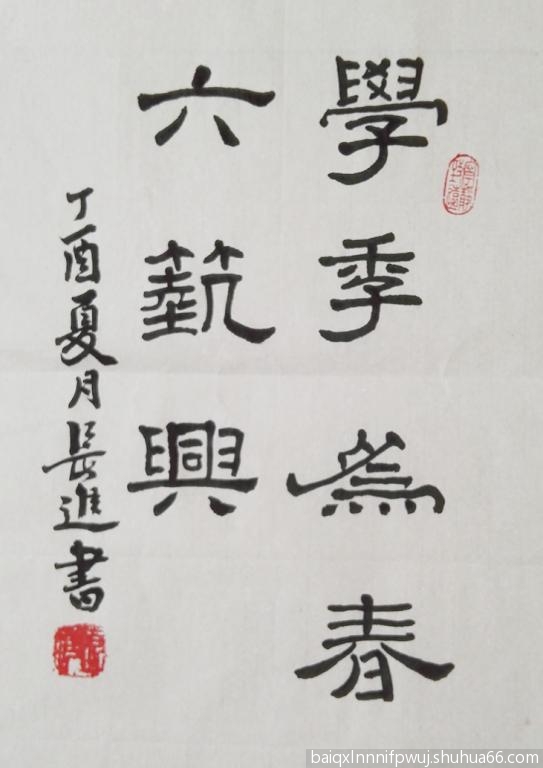 學季為春
六藝興
丁酉夏月長進書
baiqxlnnnifpwuj.shuhua66.com